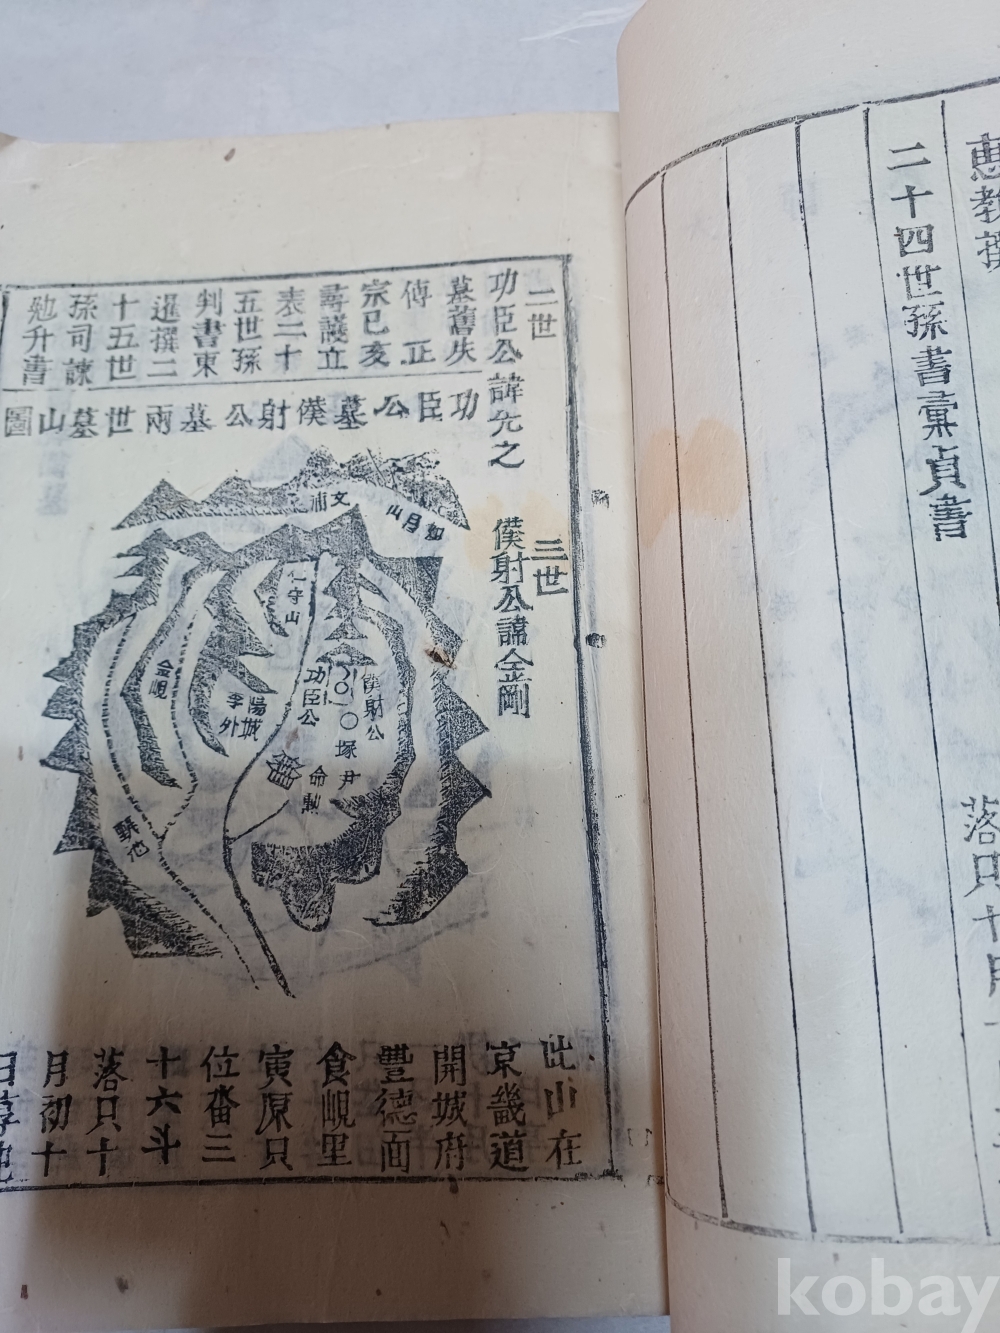 惠教撰
落只十月
二十四世孫書彙貞書
二世
三世
功臣公諱先之
僕射公諱金剛
墓舊失
傳正
宗己亥
尋護立
表二十
五世孫
判書東
暹撰二
十五世
孫司諫
勉升書
功臣公墓僕射公墓兩世墓山圖
文浦
如月山
仁守山
僕射公
功臣公
塚尹
命勳
陽城
李外
金峴
龍
此山在
京畿道
開城府
豐德面
食峴里
寅原只
位畓三
十六斗
落只十
月初十
日享祀
kobay